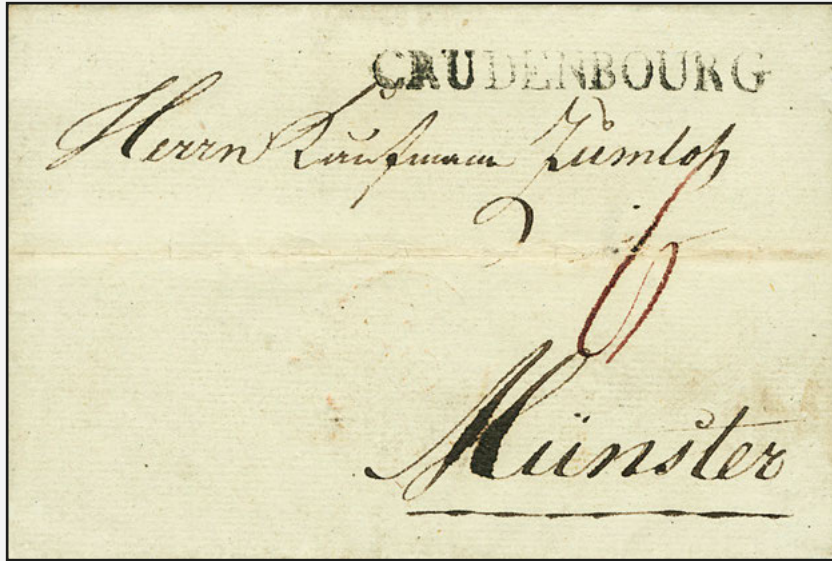 CRUDENBOURG
Herrn Kaufmann Zumloh
6
Münster